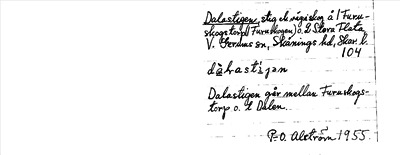 Dalastigen, stig och vägiskog å 1 Furu-
skogstorp (Furuskogen) o. 2 Stora Flata
V. Gerums sn, Skånings hd, Skar. l.
104
dàlrastijən
Dalastigen går mellan Furuskogs-
torp o. t Dalen.
P-O. Alström 1955.